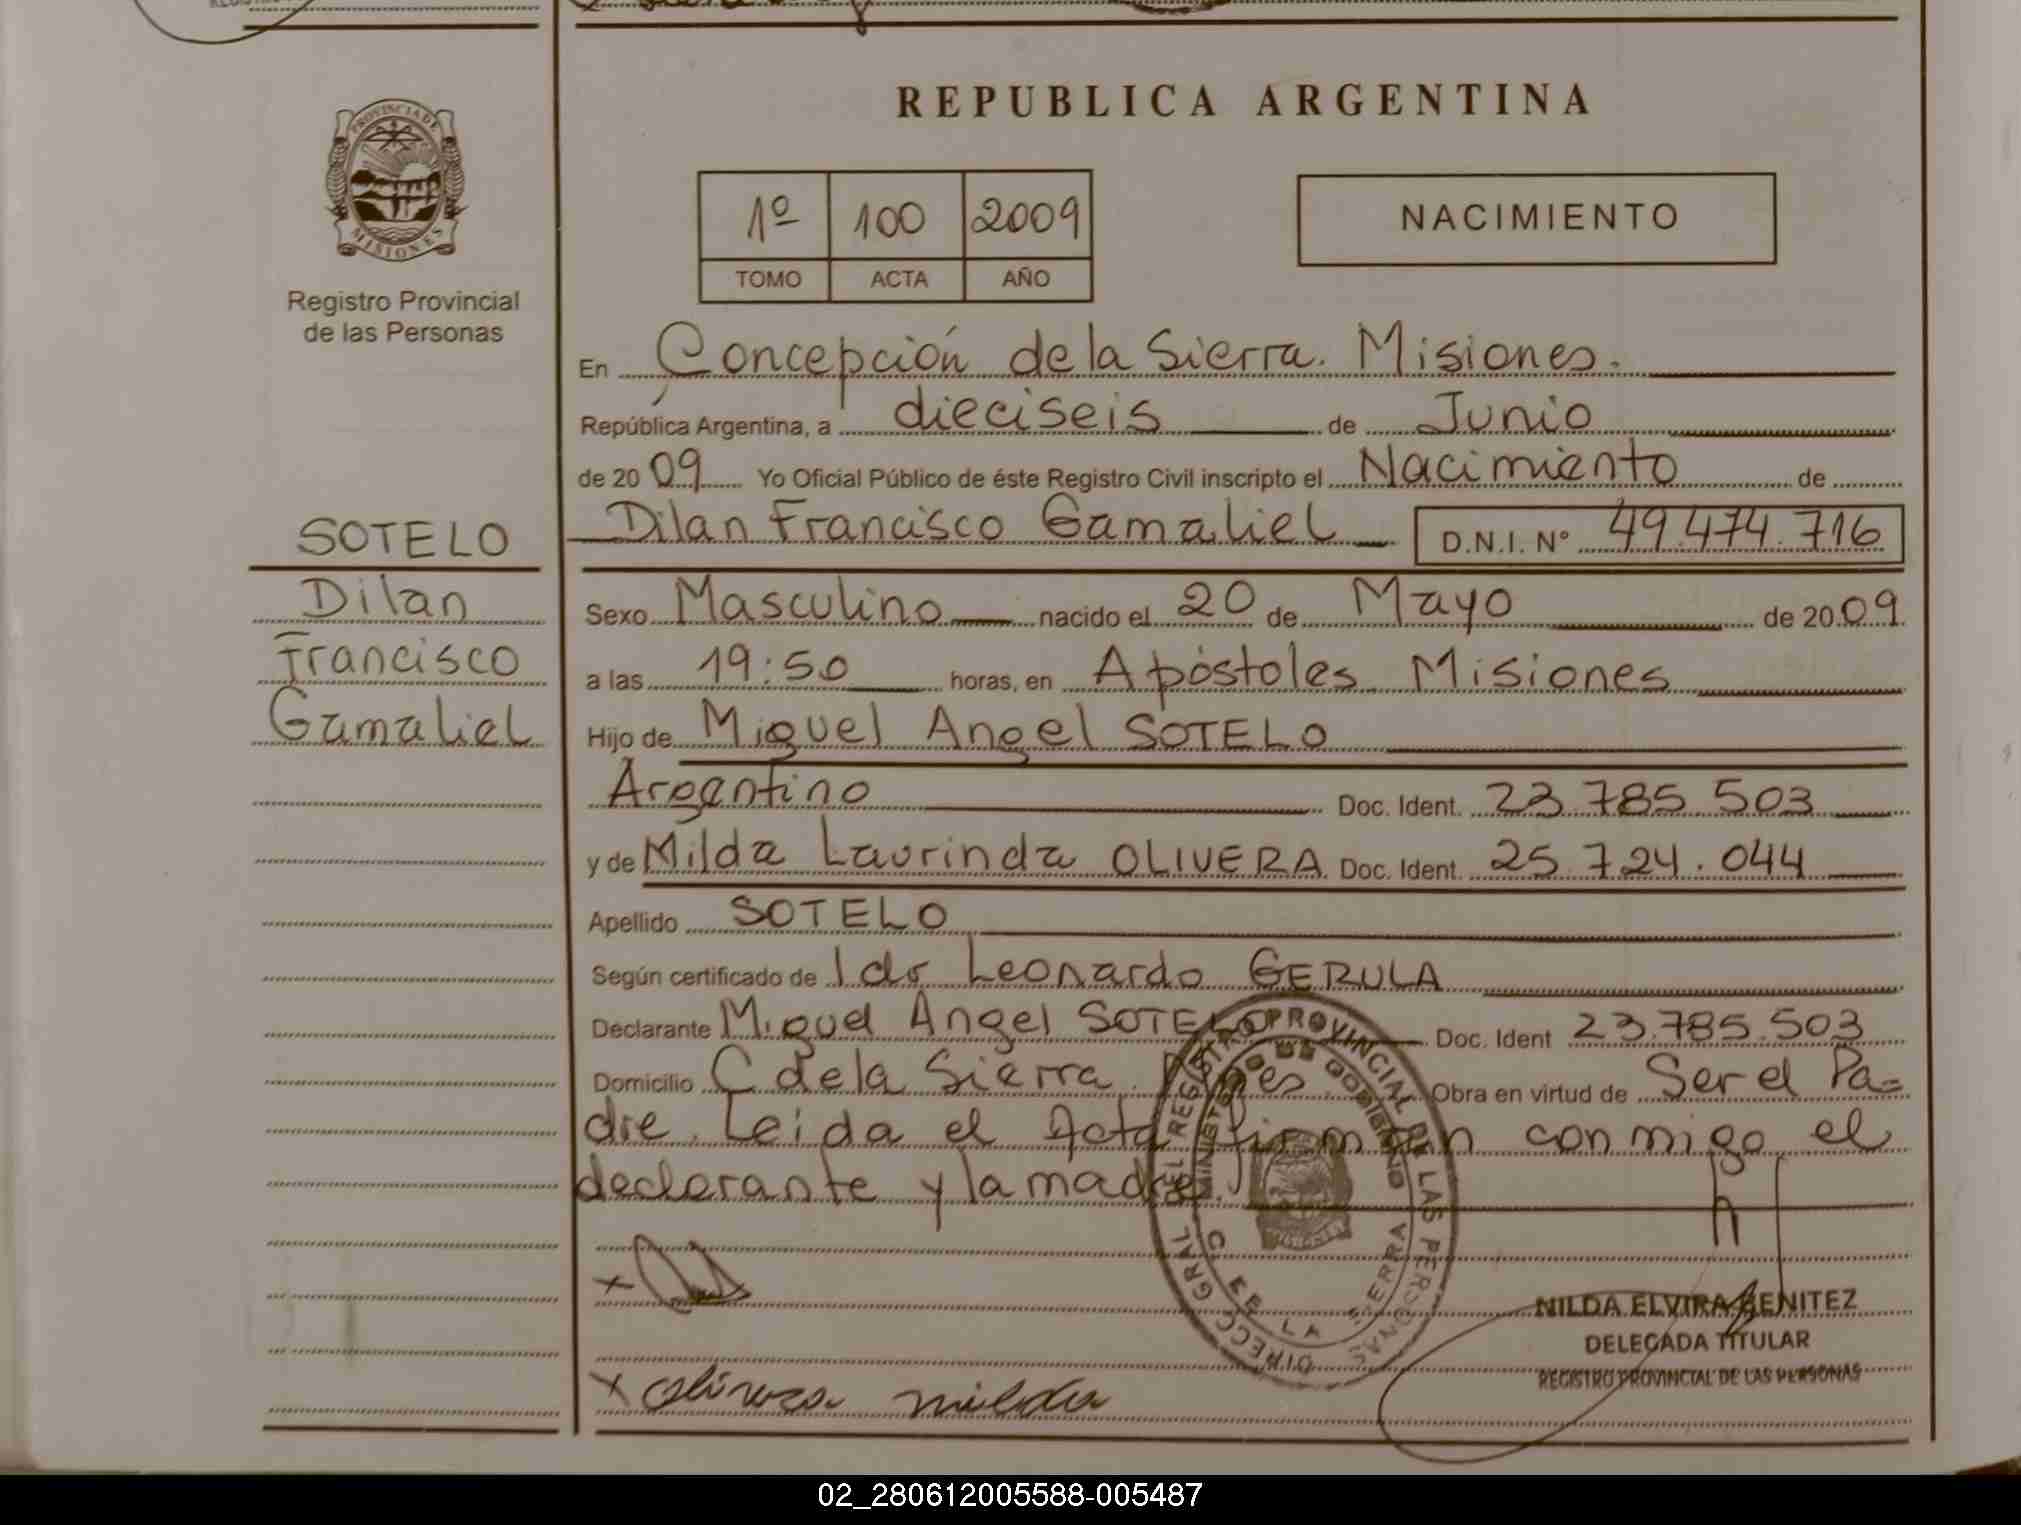 REPUBLICA ARGENTINA
PROVINCIA DE MISIONES
Registro Provincial
de las Personas
1º 100 2009
TOMO ACTA AÑO
NACIMIENTO
En Concepción de la Sierra. Misiones.
República Argentina, a dieciseis de Junio
de 2009 Yo Oficial Público de éste Registro Civil inscripto el Nacimiento de
Dilan Francisco Gamaliel D.N.I. Nº 49.474.716
SOTELO
Dilan
Francisco
Gamaliel
Sexo Masculino nacido el 20 de Mayo de 2009
a las 19:50 horas, en Apóstoles Misiones
Hijo de Miguel Angel SOTELO
Argentino Doc. Ident. 23.785.503
y de Milda Laurinda OLIVERA Doc. Ident. 25.724.044
Apellido SOTELO
Según certificado de Leonardo GERULA
Declarante Miguel Angel SOTELO Doc. Ident 23.785.503
Domicilio C de la Sierra. Obra en virtud de Ser el Pa=
dre. Leida el Acta firman conmigo el
declarante y la madre.
DIRECC. GRAL. DEL REGISTRO PROVINCIAL DE LAS PERSONAS
MINISTERIO DE GOBIERNO
C. DE LA SIERRA
x
x olivera milda
NILDA ELVIRA BENITEZ
DELEGADA TITULAR
REGISTRO PROVINCIAL DE LAS PERSONAS
02_280612005588-005487